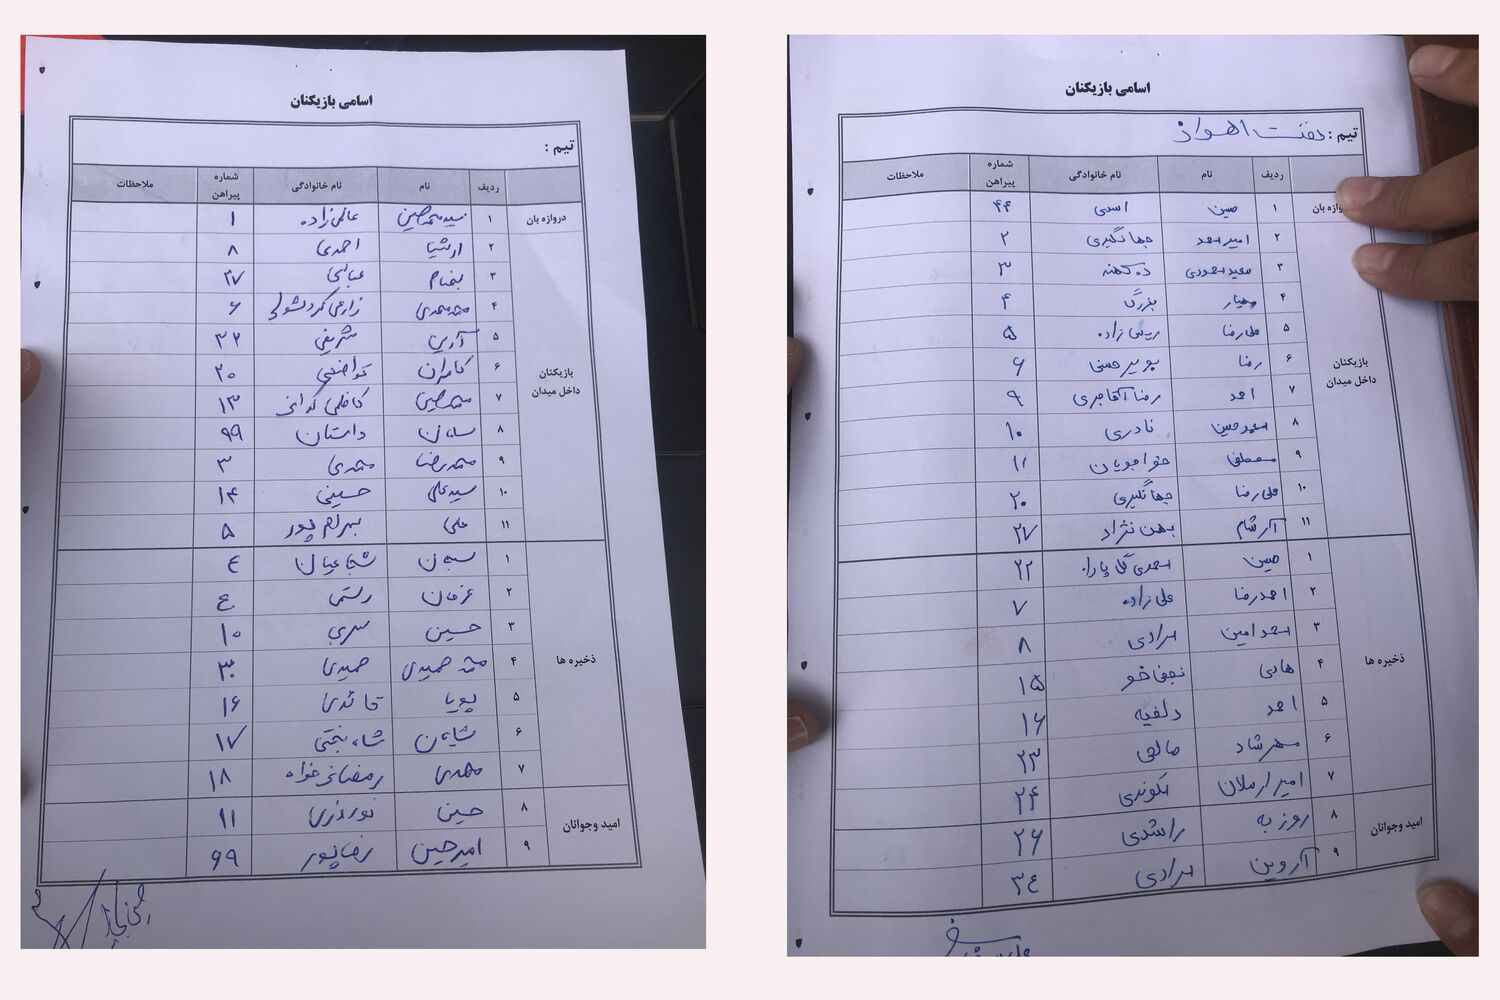 اسامی بازیکنان
تیم :
ردیف نام نام خانوادگی شماره پیراهن ملاحظات
دروازه بان ۱ سید محمد حسین عالمی‌زاده ۱
۲ ارشیا احمدی ۸
۳ بهنام عبالی ۲۷
۴ محمد مهدی زارعی ۶
۵ آرین شریفی ۳۲
۶ کامران ۲۰
۷ محمد حسین کاظمی ۱۳
۸ سامان داستان ۹۹
۹ محمدرضا محمدی ۳
۱۰ سید علی حسینی ۱۴
۱۱ علی بهرام پور ۵
بازیکنان داخل میدان
۱ سبحان شجاعیان ٤
۲ عرفان رستمی
۳ حسین ۱۰
۴ حمیدی ۳۰
۵ پویا قائدی ۱۶
۶ شایان شاه بختی ۱۷
۷ مهدی رمضانی خواه ۱۸
ذخیره ها
۸ حسین نوروزی ۱۱
۹ امیرحسین رضاپور ۶۹
امید وجوانان
اسامی بازیکنان
تیم : نفت اهواز
ردیف نام نام خانوادگی شماره پیراهن ملاحظات
۱ حسین اسدی ۴۴
۲ امیر محمد جهانگیری ۲
۳ ده کهنه ۳
۴ مهیار بزرگ ۴
۵ علی رضا رییسی زاده ۵
۶ رضا بویر حسنی ۶
۷ احمد رضا آقاجری ۹
۸ محمد حسین نادری ۱۰
۹ مصطفی خواجویان ۱۱
۱۰ علی رضا جهانگیری ۲۰
۱۱ آرشام بهمن نژاد ۲۷
بازیکنان داخل میدان
۱ حسین محمدی گل پارا ۲۲
۲ احمدرضا علی زاده ۷
۳ محمد امین مرادی ۸
۴ هادی نجفی خو ۱۵
۵ احمد دلفیه ۱۶
۶ مهرشاد صالحی ۲۳
۷ امیر ارسلان ۲۴
ذخیره ها
۸ روزبه راشدی ۲۶
۹ آروین مرادی ۳٤
امید وجوانان